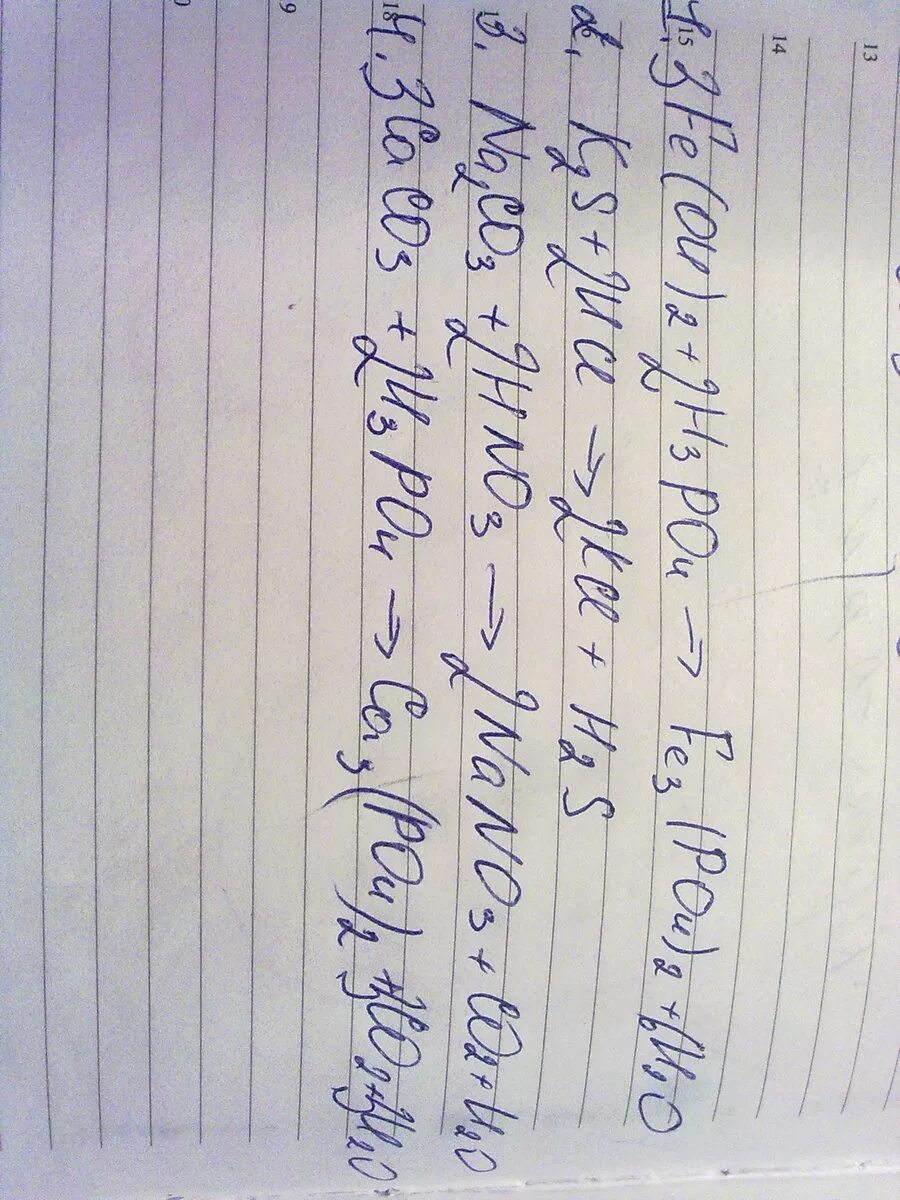 13
14
15
1. 3Fe(OH)2 + 2H3PO4 → Fe3(PO4)2 + 6H2O
2. K2S + 2HCl → 2KCl + H2S
3. Na2CO3 + 2HNO3 → 2NaNO3 + CO2 + H2O
18
4. 3CaCO3 + 2H3PO4 → Ca3(PO4)2 + 3CO2 + 3H2O
9